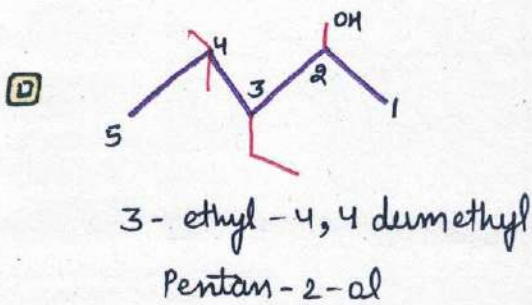 D
OH
4
3
2
1
5
3- ethyl - 4, 4 dimethyl
Pentan - 2 - ol